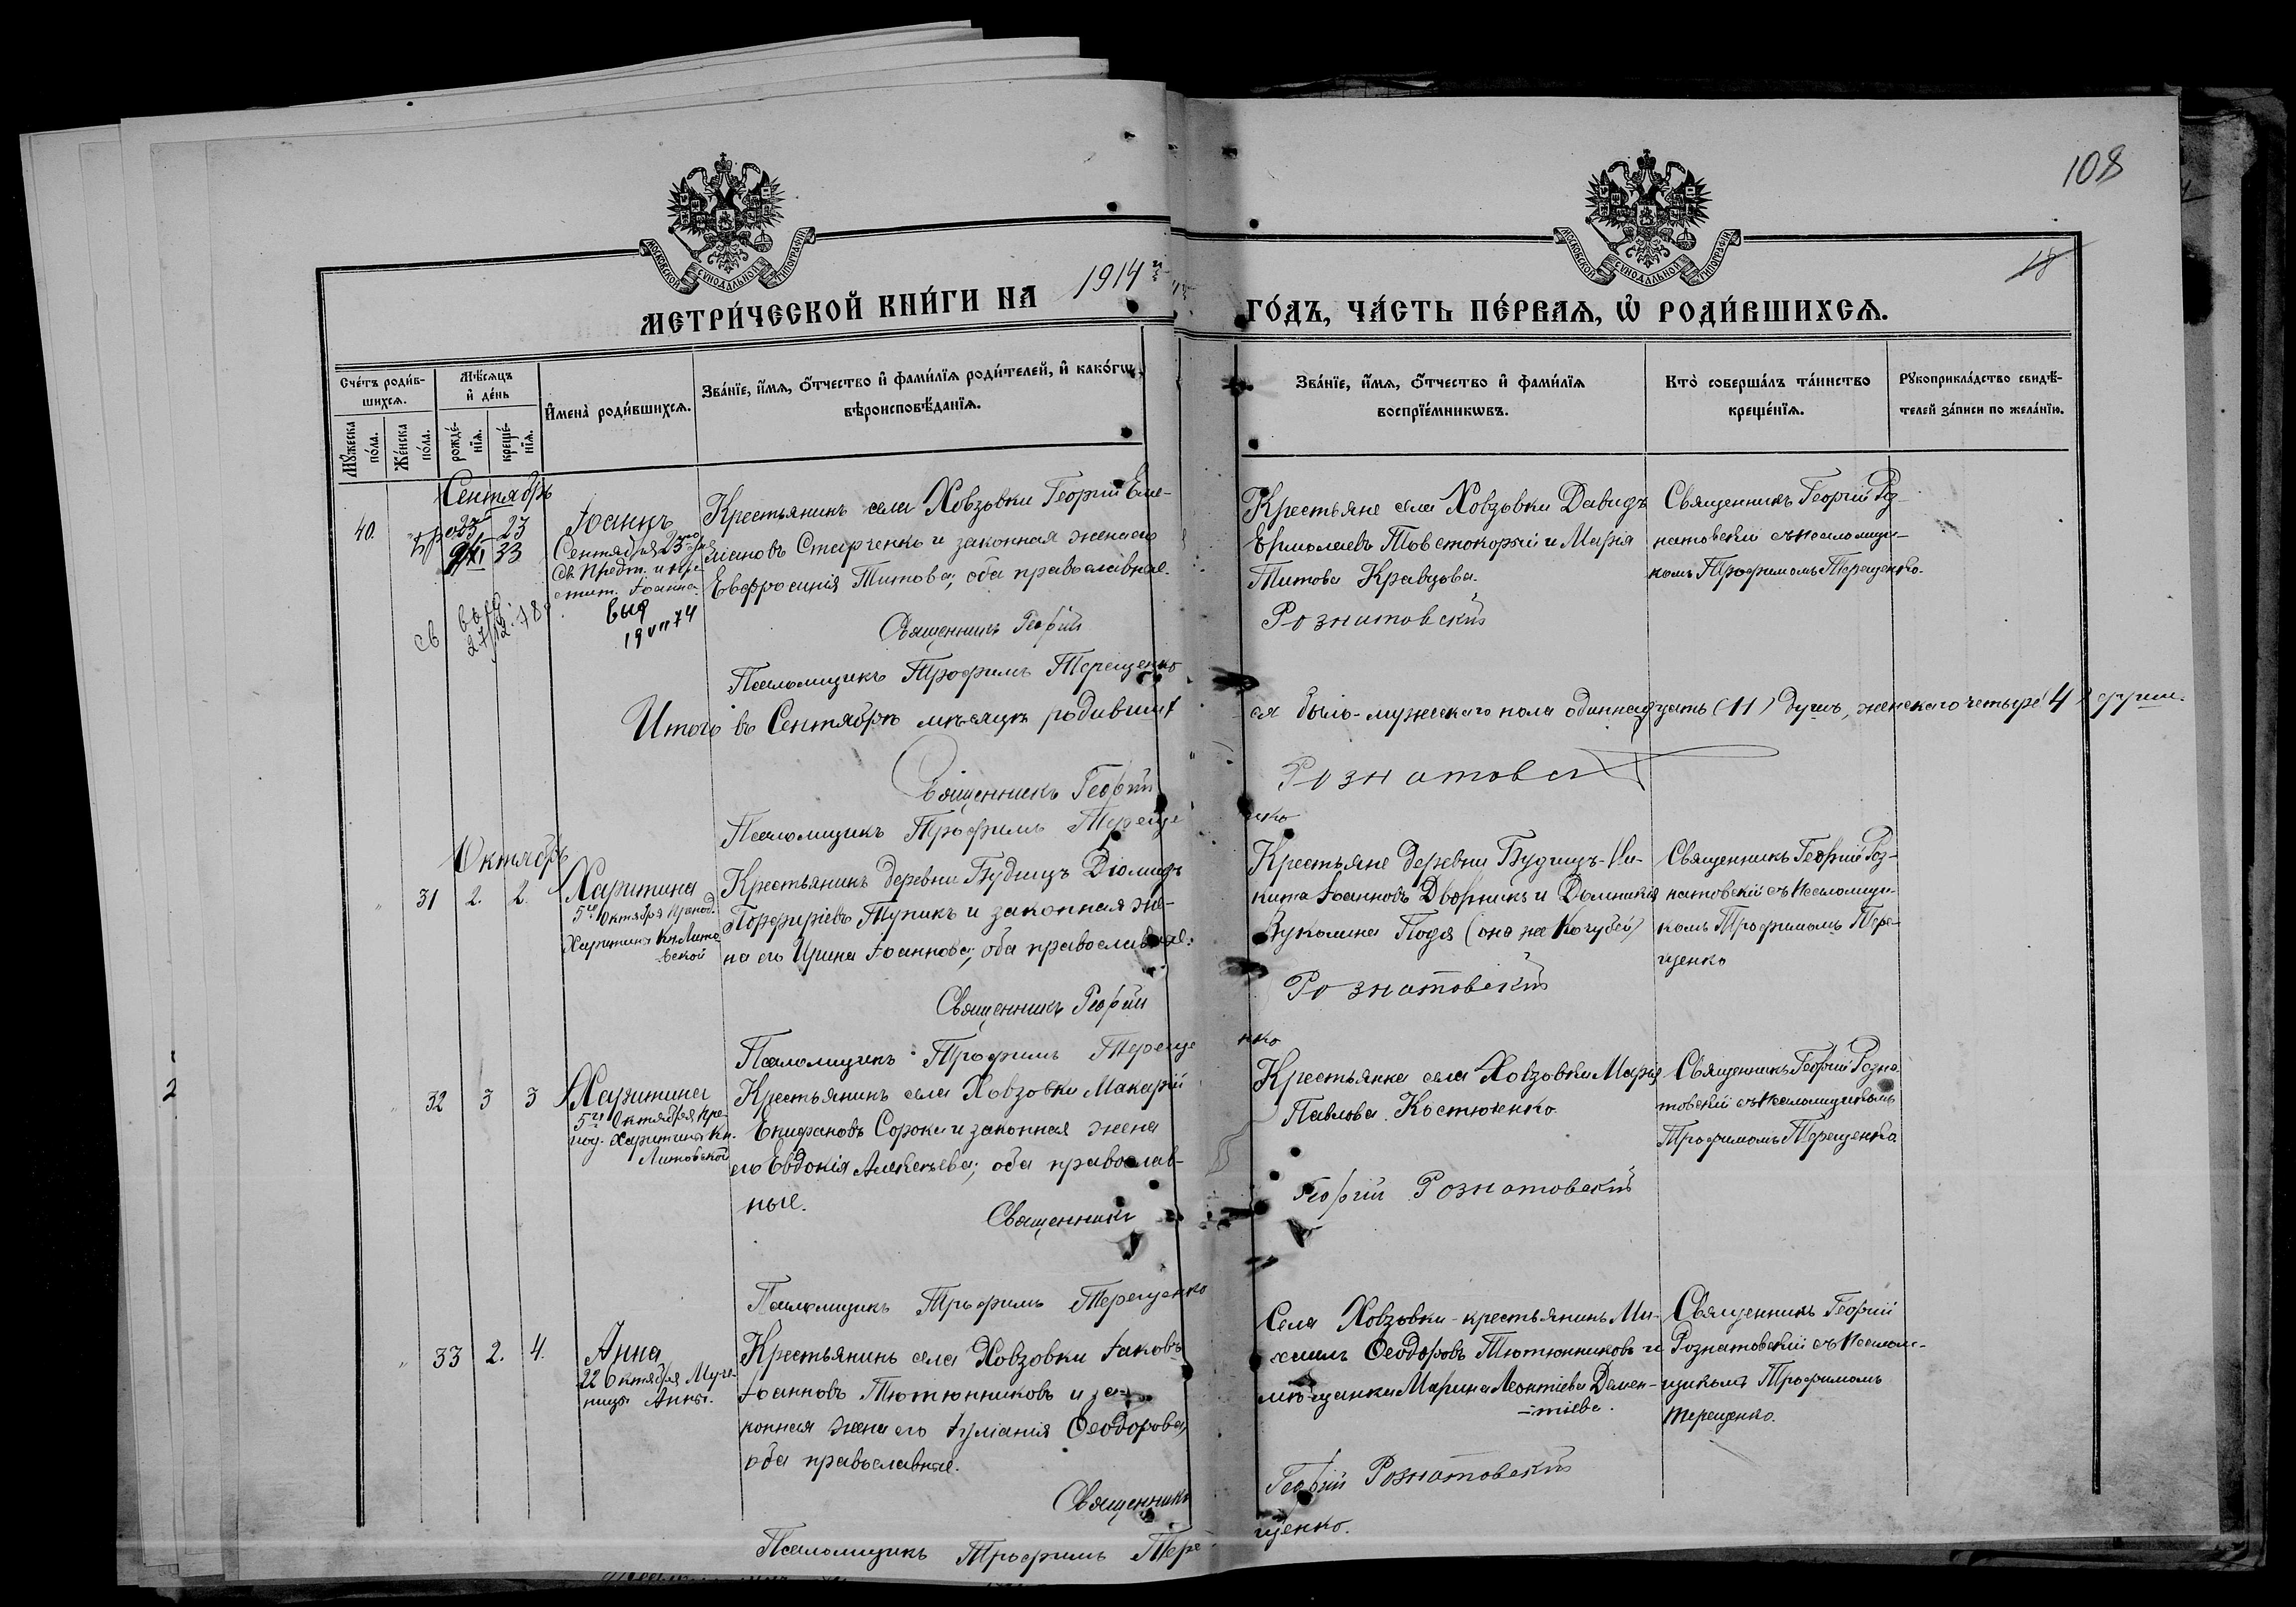 108
18
МОСКОВСКОЙ СѴНОДАЛЬНОЙ ТИПОГРАФІИ
МОСКОВСКОЙ СѴНОДАЛЬНОЙ ТИПОГРАФІИ
МЕТРИ́ЧЕСКОЙ КНИ́ГИ НА 1914 й
ГО́ДЪ, ЧА́СТЬ ПЕ́РВАѦ, Ѡ҆ РОДИ́ВШИХСѦ.
Сче́тъ роди́в-
шихсѧ.
Мꙋ́жеска по́ла.
Же́нска по́ла.
Мѣ́сѧцъ
и҆ де́нь
рожде́-
нїѧ.
креще́-
нїѧ.
И҆мена̀ роди́вшихсѧ.
Зва́нїе, и҆́мѧ, ѻ҆́тчество и҆ фами́лїѧ роди́телей, и҆ како́гѡ
вѣроисповѣ́данїѧ.
Зва́нїе, и҆́мѧ, ѻ҆́тчество и҆ фами́лїѧ
воспрїе́мникѡвъ.
Кто̀ соверша́лъ та́инство
креще́нїѧ.
Рꙋкоприкла́дство свидѣ́-
телей за́писи по жела́нїю.
Сентябрь
40.
23 23
33
Іоаннъ
Сентября 23го дня
Св. Предт. и кре-
стит. Іоанна.
выд
19 VII 74
св
27/12.78
Крестьянинъ села Ховзовки Георгій Еме-
ліановъ Старченко и законная жена его
Евфросинія Титова; оба православные.
Священникъ Георгій
Псаломщикъ Трофимъ Терещенко
Крестьяне села Ховзовки Давидъ
Ермолаевъ Товстокорый и Марія
Титова Кравцова.
Рознатовскій
Священникъ Георгій Роз-
натовскій съ псаломщи-
комъ Трофимомъ Терещенко.
Итого въ Сентябрѣ мѣсяцѣ родивших
ся было - мужескаго пола одиннадцать (11) душъ, женскаго четыре 4) души.
Священникъ Георгій
Рознатовск
Псаломщикъ Трофимъ Тереще
нко
Октябрь
31 2. 2.
Харитина
5го Октября препод.
Харитины Кн. Литов
ской
Крестьянинъ деревни Будищъ Діомидъ
Порфиріевъ Тупикъ и законная же-
на его Ирина Іоаннова; оба православные.
Священникъ Георгій
Псаломщикъ Трофимъ Тереще
нко
Крестьяне деревни Будищъ - Ни-
кита Іоанновъ Дворникъ и Домникія
Вуколина Подя (она же Кочубей)
Рознатовскій
Священникъ Георгій Роз-
натовскій съ псаломщи-
комъ Трофимомъ Тере-
щенко
32 3 3
Харитина
5го Октября пре-
под. Харитины Кн.
Литовской
Крестьянинъ села Ховзовки Макарій
Епифановъ Сорока и законная жена
его Евдокія Алексѣева; оба православ-
ные.
Священникъ
Псаломщикъ Трофимъ Терещенко
Крестьянка села Ховзовки Марія
Павлова Костюченко
Георгій Рознатовскій
Священникъ Георгій Розна
товскій съ псаломщикомъ
Трофимомъ Терещенко
33 2. 4.
Анна
22 Октября Муче-
ницы Анны.
Крестьянинъ села Ховзовки Іаковъ
Іоанновъ Тютюнниковъ и за-
конная жена его Іуліанія Ѳеодорова;
оба православные.
Священникъ
Псаломщикъ Трофимъ Тере
щенко.
Села Ховзовки - крестьянинъ Ми-
хаилъ Ѳеодоровъ Тютюнниковъ и
мѣщанка Марина Леонтіева Демен-
-тіева.
Георгій Рознатовскій
Священникъ Георгій
Рознатовскій съ псалом-
щикомъ Трофимомъ
Терещенко.
2